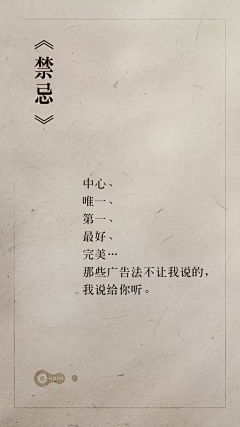 《禁忌》
中心、
唯一、
第一、
最好、
完美…
那些广告法不让我说的，
我说给你听。